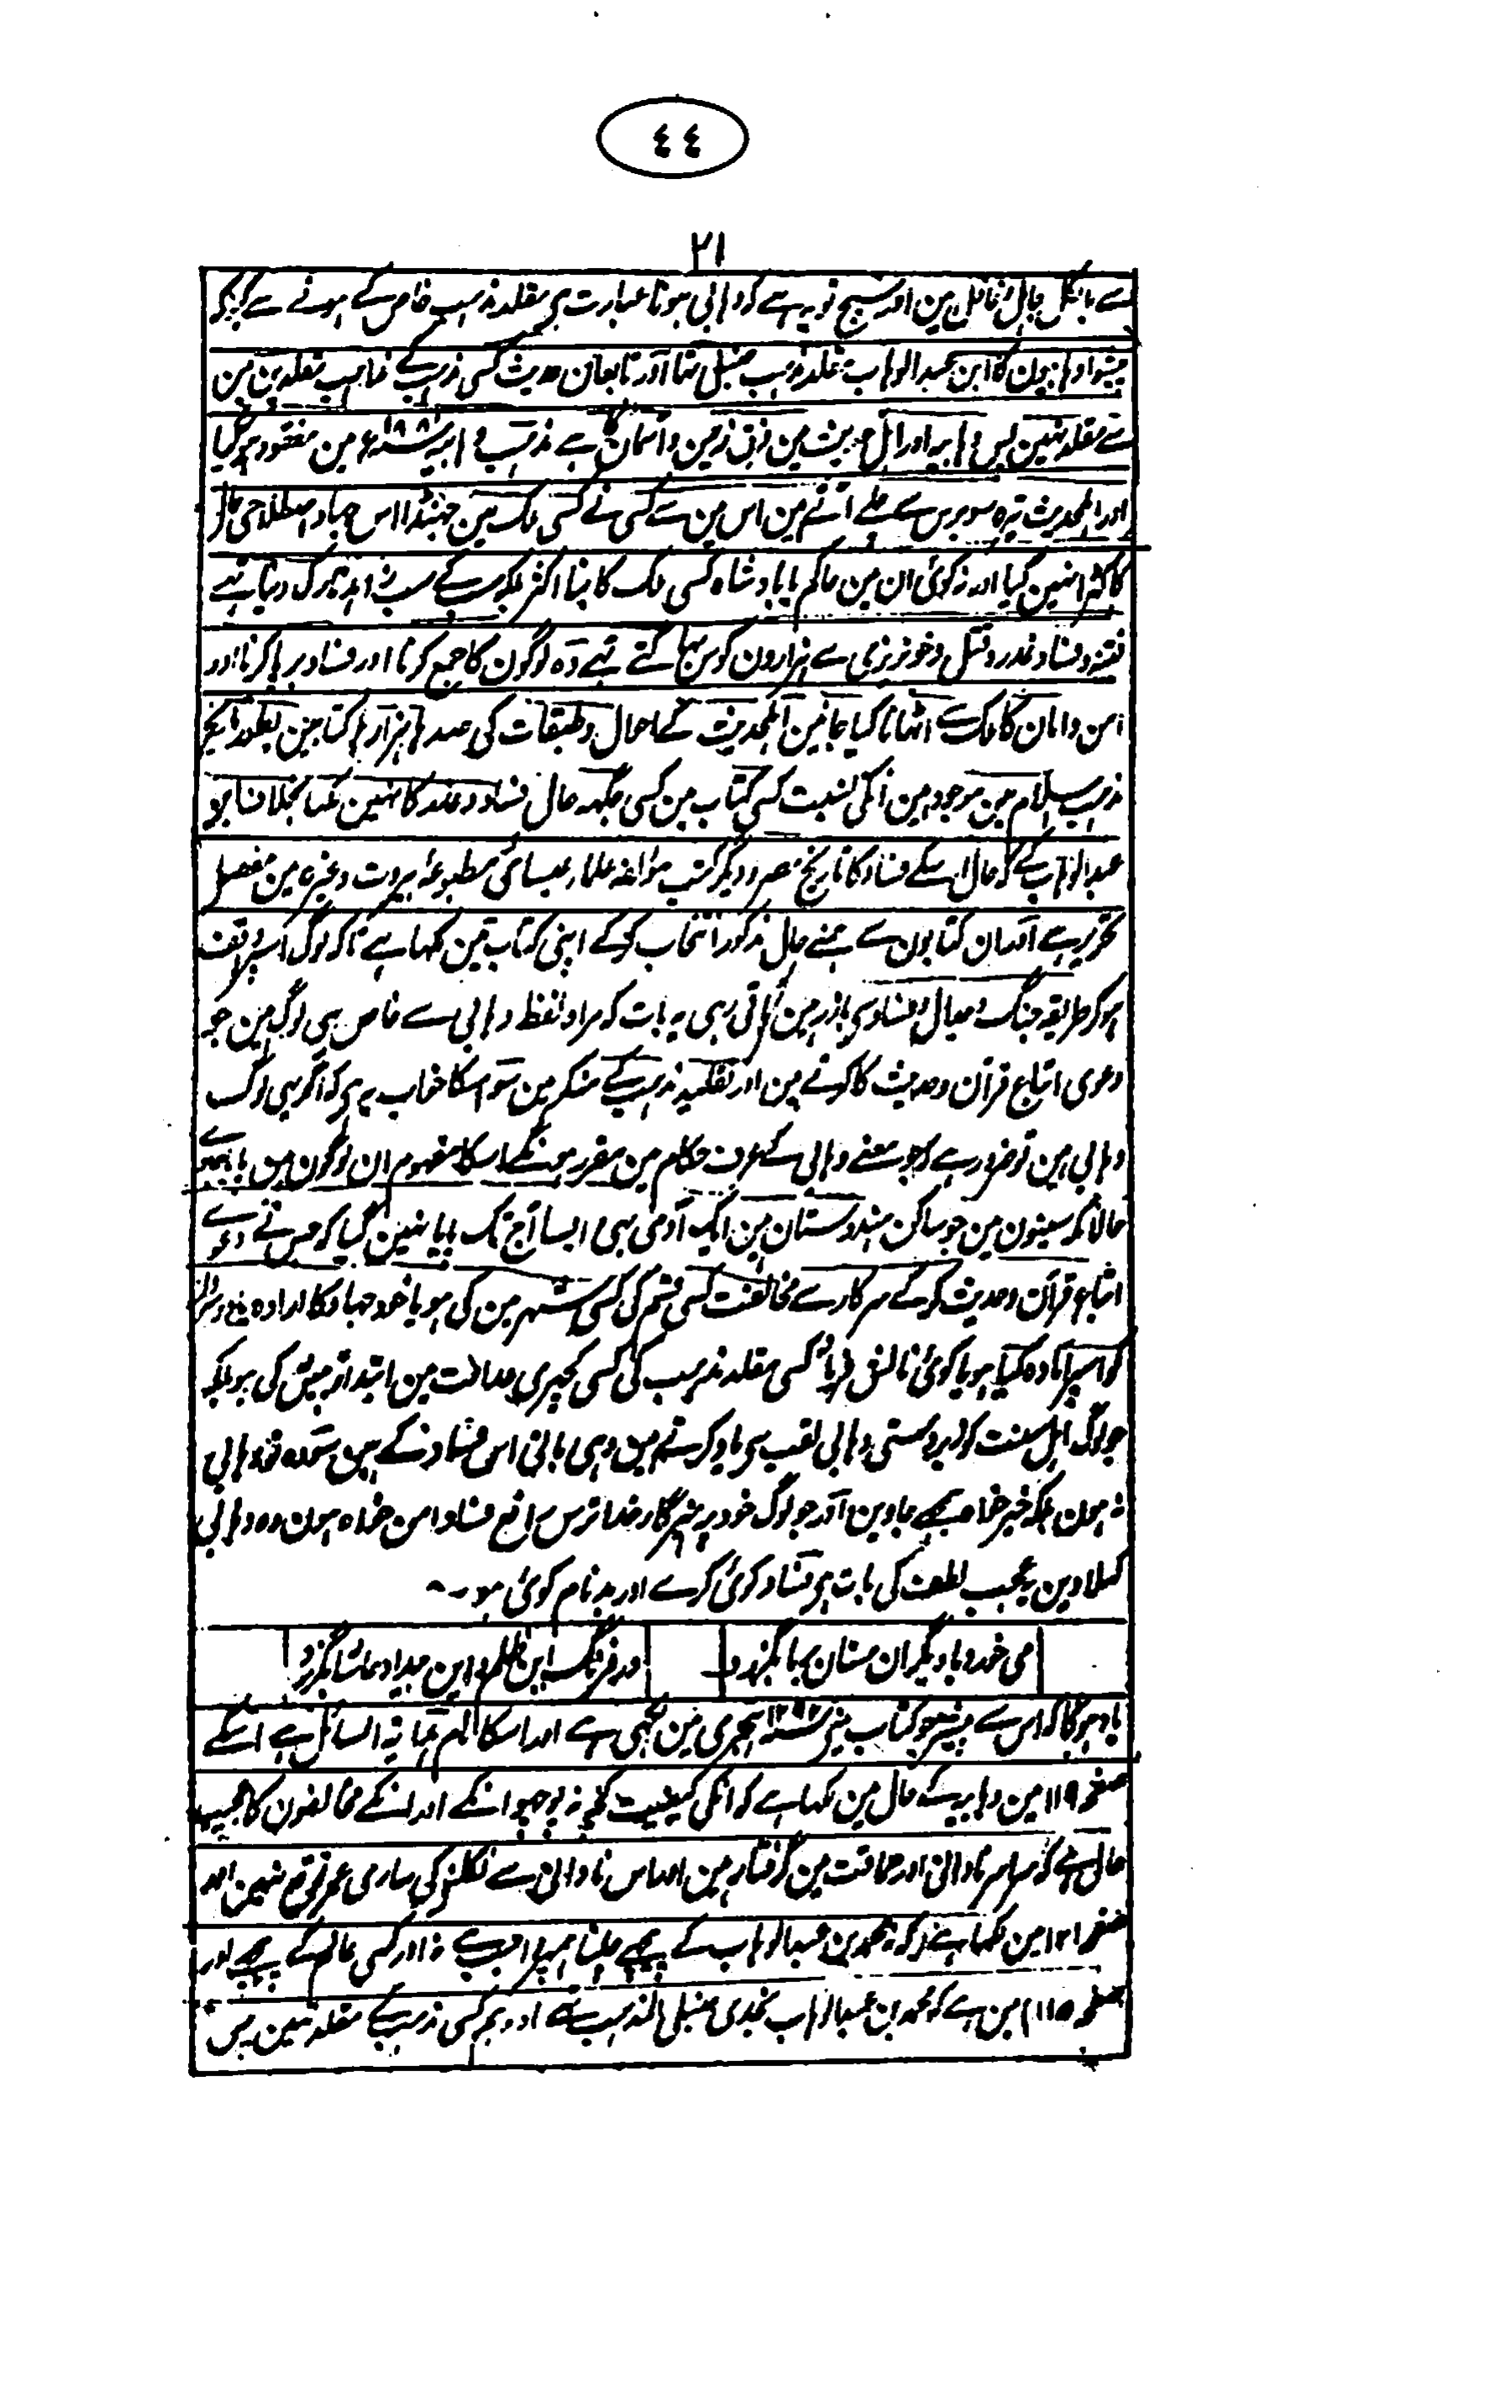 ٤٤
٢١
سے بالکل جاہل و غافل ہین اور سچ تو یہ ہے کہ وہابی ہونا عبارت ہی مقلد مذہب خاص کے ہونے سے کیونکہ
پیشوا وہابیون کا ابن عبد الوہاب مقلد مذہب حنبلی تھا اور تابعان حدیث کسی مذہب کے مذاہب مقلدین مین
سے مقلد نہین پس وہابیہ اور اہل حدیث مین فرق زمین و آسمان کا ہے مذہب وہابیہ سنہ ۱۸۱۸ء مین مفقود ہو گیا
اور اہلحدیث تیرہ سو برس سے چلے آتے ہین اس مین سے کسی نے کسی ملک مین جھنڈا اس جہاد اصطلاحی حال
کا کھڑا نہین کیا اور نہ کوئی ان مین حاکم یا بادشاہ کسی ملک کا بنا اکثر بلکہ سب کے سب زاہد تارک دنیا تہے
فتنہ و فساد و غدر و قتل و خونریزی سے ہزارون کوس بہاگتے تہے وہ لوگون کا جمع کرنا اور فساد برپا کرنا اور
امن و امان کا ملک سے اٹھانا کیا جانین اہلحدیث کے حال و طبقات کی صدہا ہزارہا کتابین بطور تاریخ
مذہب اسلام مین موجود ہین انکی نسبت کسی کتاب مین کسی جگہہ حال فساد و غدر کا نہین لکھا بخلاف ابن
عبدالوہاب کے کہ حال اسکے فساد کا تاریخ مصر و دیگر کتب مؤلفہ علماء عیسائی مطبوعہ بیروت وغیرہ مین مفصل
تحریر ہے اور ان کتابون سے ہمنے حال مذکور انتخاب کرکے اپنی کتاب مین لکھا ہے تاکہ لوگ اس سے واقف
ہو کر طریقہ جنگ و جدال و فساد سے باز رہین باقی رہی یہ بات کہ مراد لفظ وہابی سے خاص یہی لوگ ہین جو
دعوی اتباع قرآن و حدیث کا کرتے ہین اور تقلید مذہب کے منکر ہین سو اسکا جواب یہ ہی کہ اگر یہی لوگ
وہابی ہین تو ضرور ہے کہ جو معنے وہابی کے عرف حکام مین مقرر ہونگے اسکا مفہوم ان لوگون مین پایا جاوے
حالانکہ سنیون مین جو ساکن ہندوستان ہین ایک آدمی بہی ایسا آج تک پایا نہین گیا کہ جس نے دعوے
اتباع قرآن و حدیث کرکے سرکار سے مخالفت کسی قسم کی کسی شہر مین کی ہو یا خود جہاد کا ارادہ
کو اسپر آمادہ کیا ہو یا کوئی نالش فریاد کسی مقلد مذہب کی کسی کچہری عدالت مین ابتداءً پیش کی ہو بلکہ
جو لوگ اہل سنت کو زبردستی وہابی لقب سی یاد کرتے ہین وہی بانی اس فساد کے ہین سو وہ تو وہابی
نہ ہون بلکہ خیرخواہ سمجہے جاوین اور جو لوگ خود پرہیزگار خدا ترس رافع فساد امن خواہ ہون وہ وہابی
کہلاوین عجب لطف کی بات ہی فساد کوئی کرے اور بدنام کوئی ہو ۔
می خورد با دیگران مستان بما بگذرد در فرنگ این ظلم و این بیداد حاشا بگذرد
یاد ہوگا کہ اس سے پیشتر جو کتاب مینے سنہ ۱۲۹۲ ہجری مین لکھی ہے اور اسکا نام ہدایۃ السائل ہے اسکے
صفحہ ۱۱۹ مین وہابیہ کے حال مین لکھا ہے کہ انکی کیفیت کچھ نہ پوچھو انکے اور انکے مخالفون کا عجیب
حال ہے کہ سراسر نادانی اور حماقت مین گرفتار ہین اور اس نادانی سے نکلنے کی ساری عمر توقع نہین اور
صفحہ ۱۲۱ مین لکھا ہے کہ نہ محمد بن عبدالوہاب کے پیچھے چلنا ہمپر واجب ہے نہ اور کسی عالم کے پیچھے اور
صفحہ ۱۱۵ مین ہے کہ محمد بن عبدالوہاب نجدی حنبلی المذہب تھے اور ہم کسی مذہب کے مقلد نہین پس